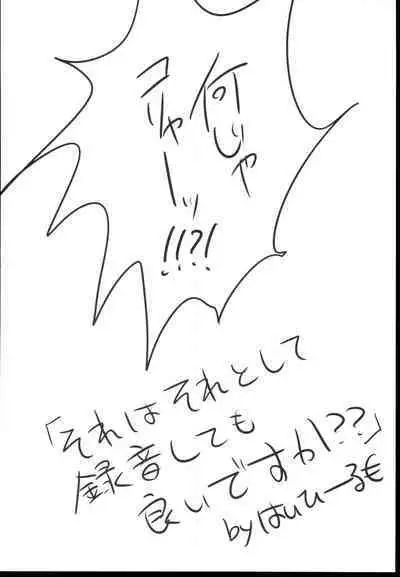 何じゃ
コリャーッ
!!?!
「それはそれとして
録音しても
良いですか!??」
byはいひーるも